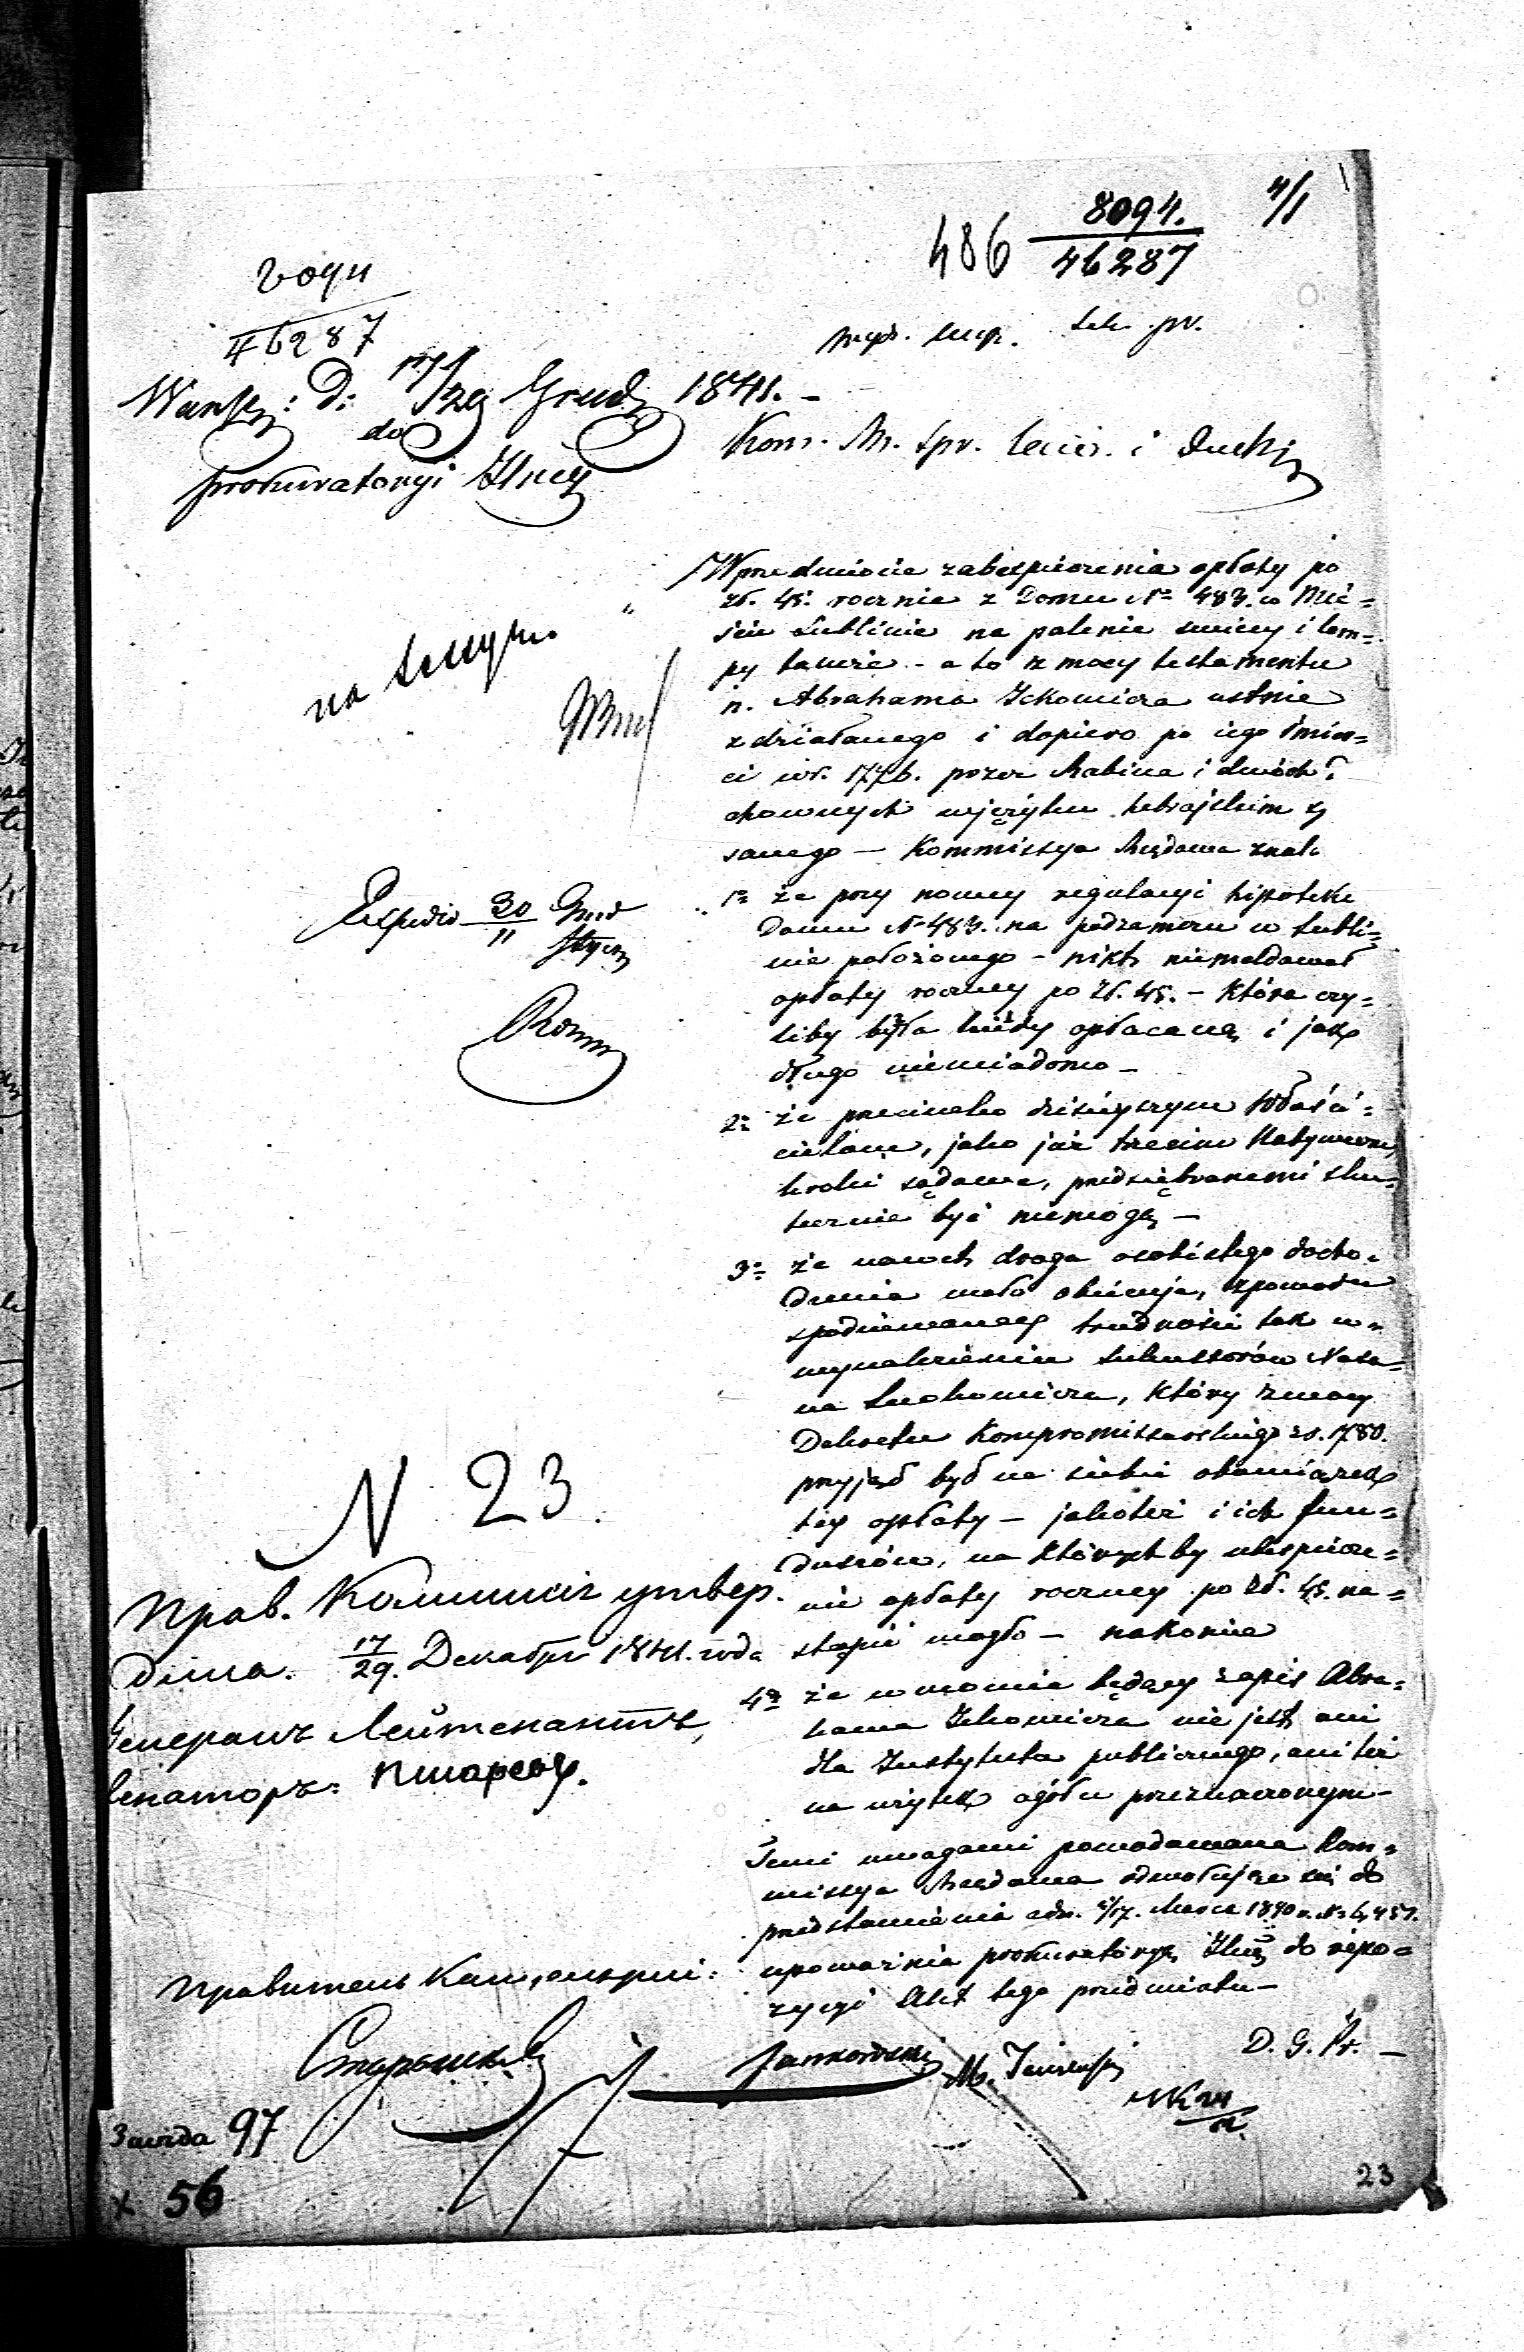 486 8094.
46287
4/1
8094
46287
Warsz: D: 17/29 Grud 1841. –
do
Prokuratoryi Jlney
Kom. Spr. i Duch
W przedmiocie zabespieczenia opłaty po
zł. 45. rocznie z Domu No 483. w Mie=
ście Lublinie na palenie swiecy i lam=
py tamże – a to z mocy testamentu
n. Abrahama Ickowicza ustnie
zdziałanego i dopiero po iego śmier=
ci w r. 1776. przez Rabina i dwóch
chownych w języku hebrajskim
sanego – Kommissya Rządowa
1o że przy nowey regulacyi hipoteki
Domu No 483. na podzamczu w Lubli=
nie położonego – nikt niemeldował
opłaty roczney po zł. 45. – która czy=
liby była kiedy opłacaną i jak
długo niewiadomo –
2o że przeciwko dzisieyszym Właści=
cielom, jako już trzecim
kroki sądowe, przedsiębranemi sku=
tecznie być niemogą –
3o że nawet droga osobistego docho=
dzenia mało obiecuje, z powodu
spodziewaney trudności tak w
wynalezieniu sukcessorów
na który z mocy
Dekretu Kompromissarskiego z r. 1780.
przyjął był na siebie obowiązek
tey opłaty – jakoteż i ich fun=
duszów, na którychby ubespiecze=
nie opłaty roczney po zł. 45. na=
stąpić mogło – nakoniec
4o że w mowie będący zapis Abra=
hama Ickowicza nie jest ani
dla Instytuta publicznego, ani też
na użytek ogółu przeznaczonym –
Temi uwagami powodowana Kom=
missya Rządowa odwołując się do
przedstawienia z dn. /17. Marca 1840 r. No
upoważnia prokuratoryą Jlną do repo=
zycyi Akt tego przedmiotu –
D. G. Pr. –
Expedio 30 Grud
11 Stycz
N 23.
Прав. Коммисія утвер.
дила. 17/29. Декабря 1841. года
Генералъ Лейтенантъ,
Сенаторъ: Писаревъ.
Правитель Канцеляріи:
Jankowski
97
56
23